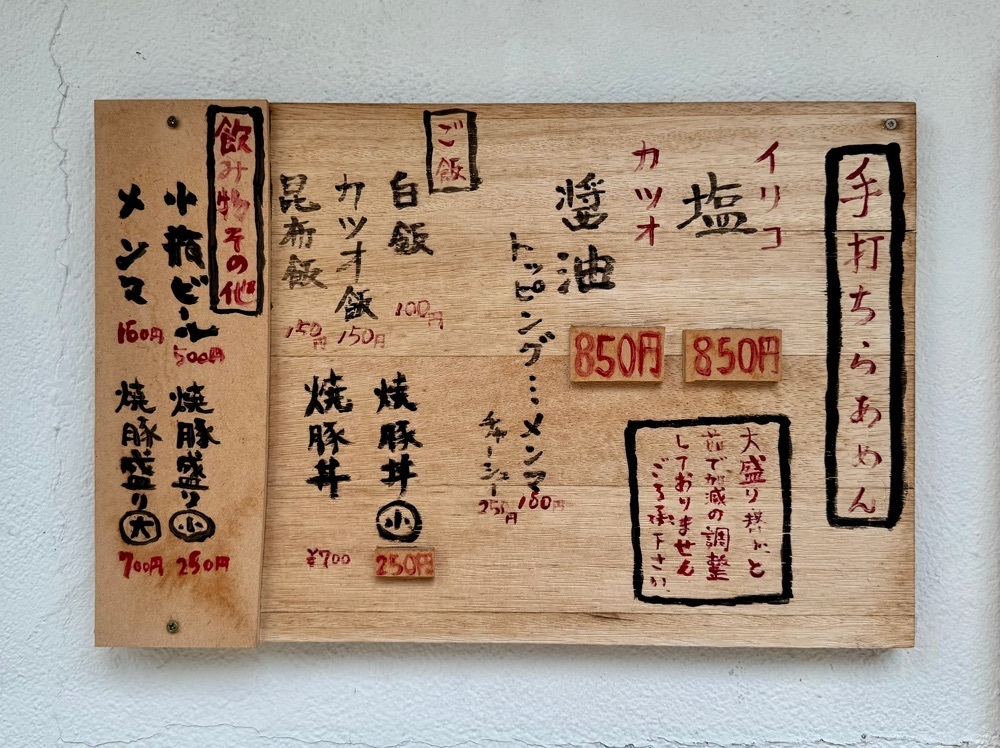 手打ちらあめん
イリコ
塩
850円
カツオ
醤油
850円
大盛り
加減の調整
しておりません
ご了承下さい
トッピング…メンマ
160円
チャーシュー
250円
ご飯
白飯
100円
カツオ飯
150円
昆布飯
150円
焼豚丼小
250円
焼豚丼
¥700
飲み物その他
小瓶ビール
500円
メンマ
160円
焼豚盛り小
250円
焼豚盛り大
700円